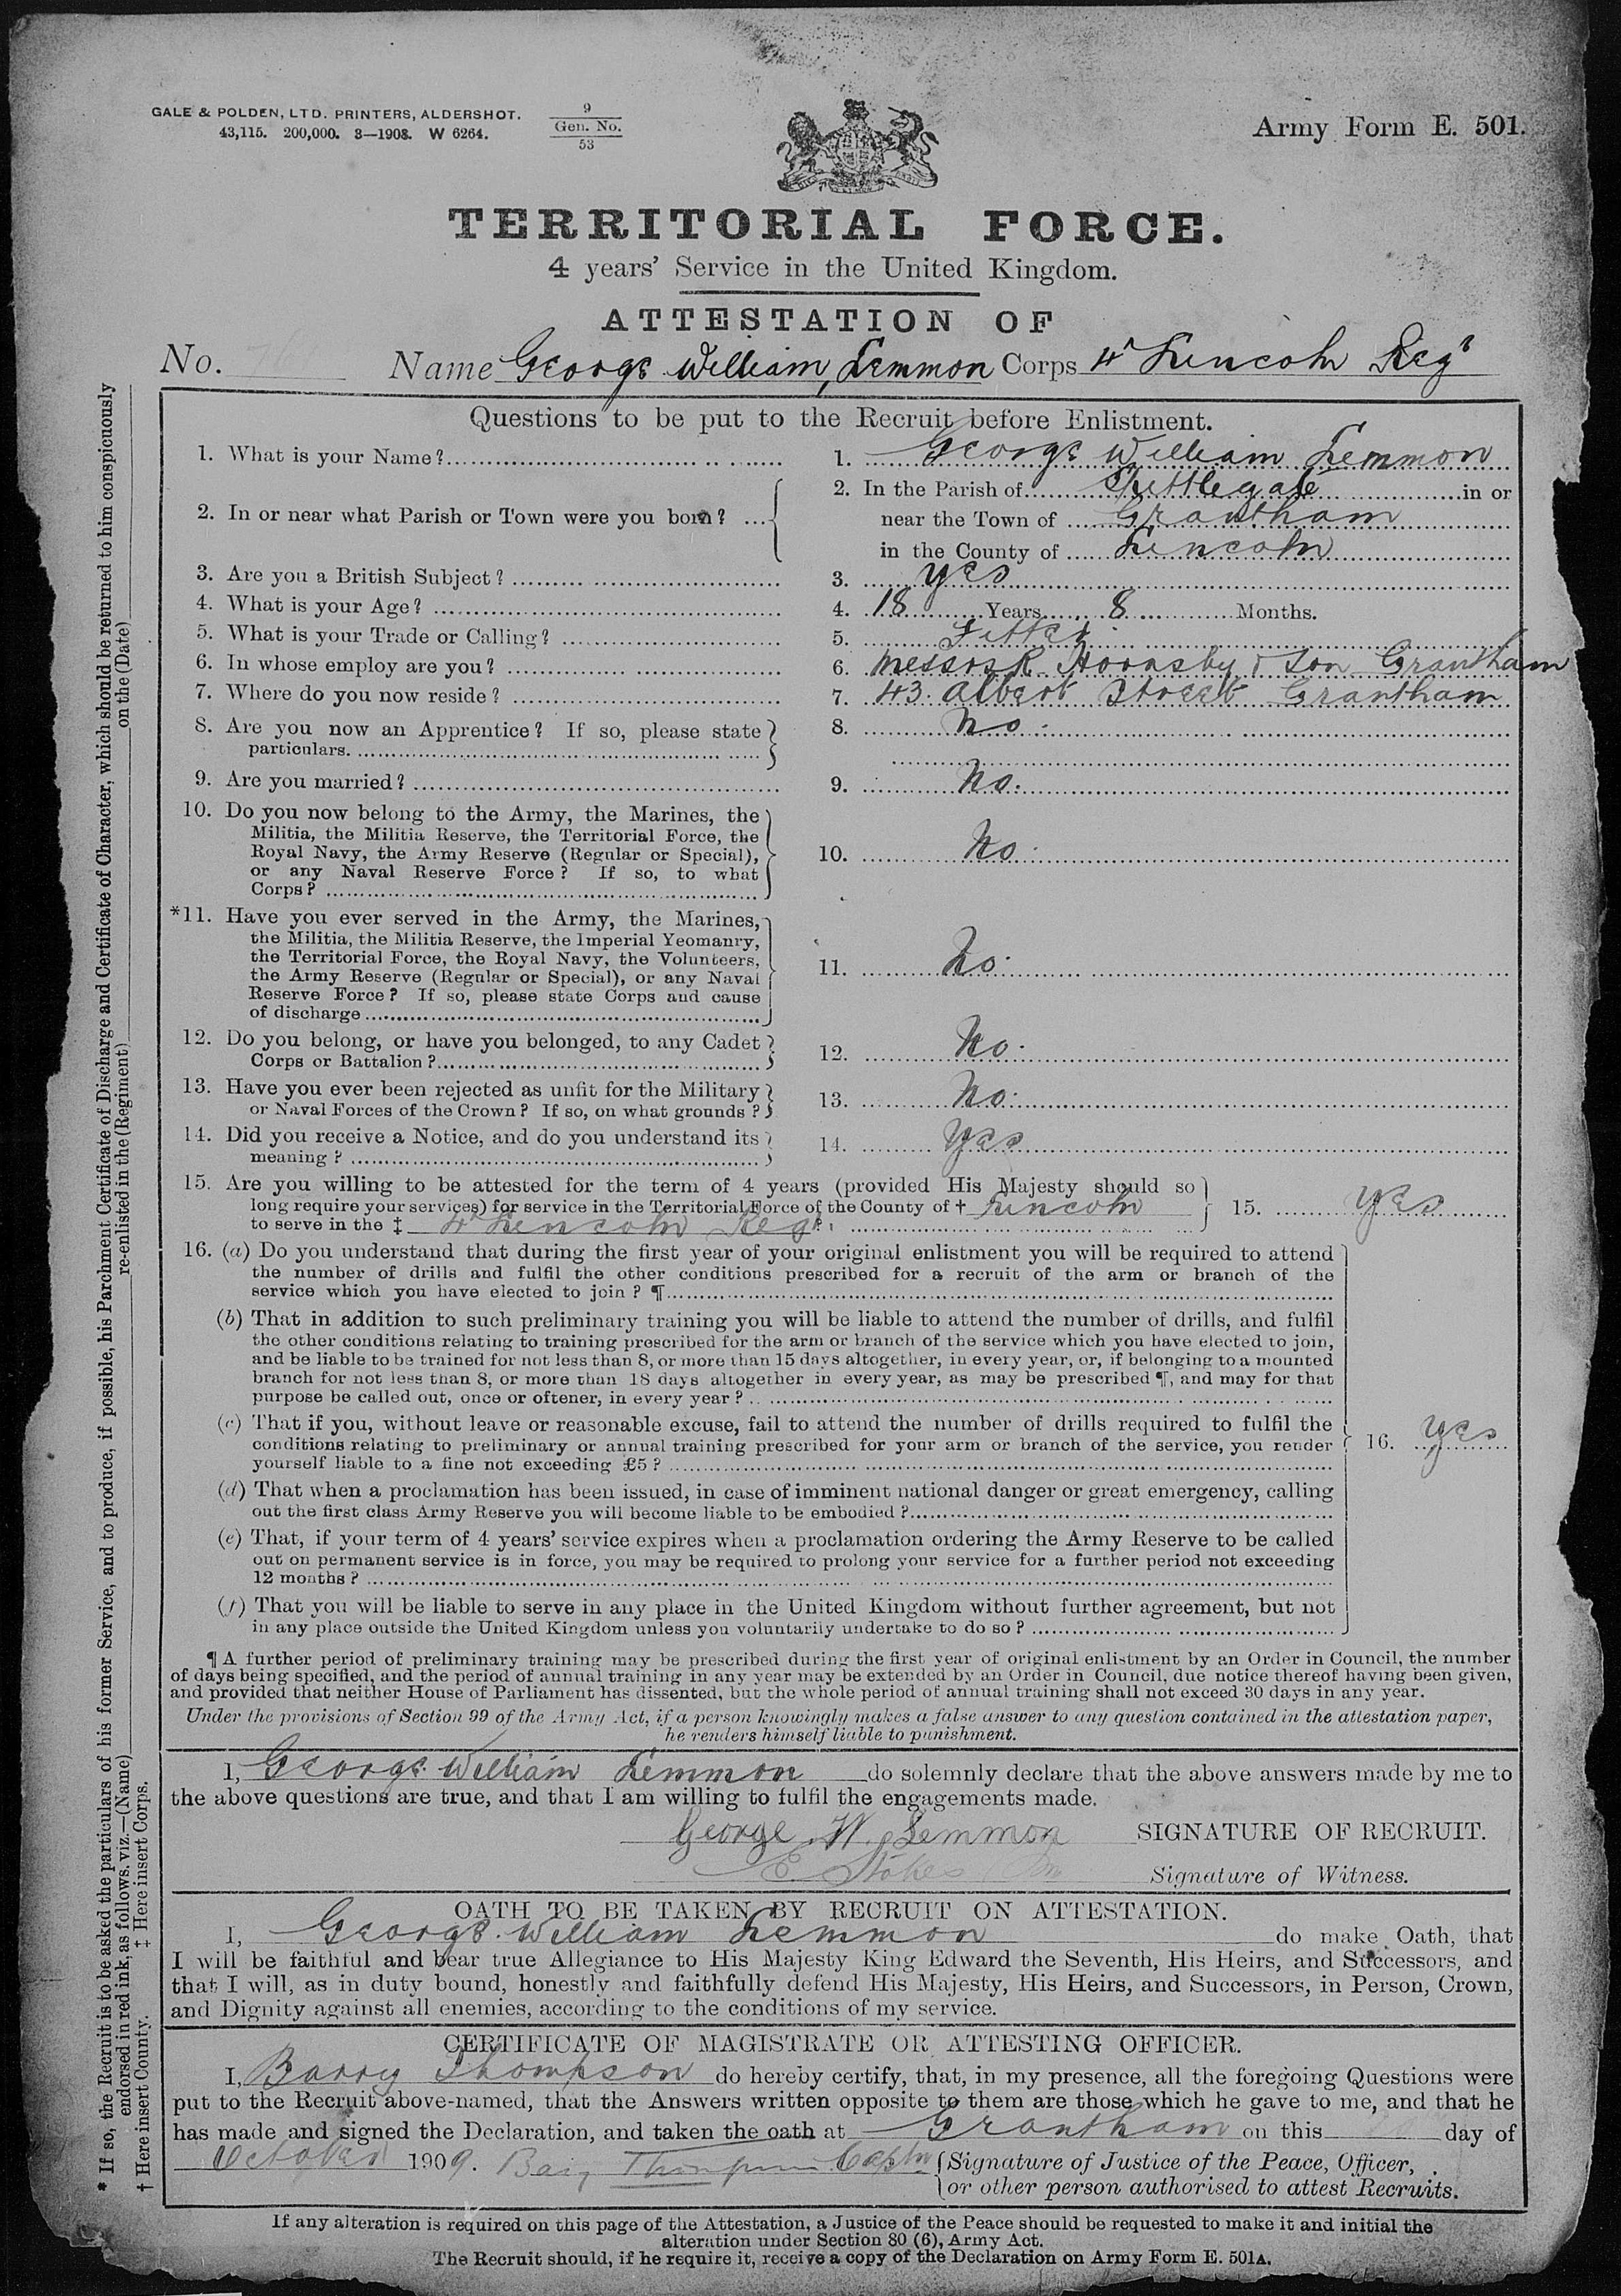 GALE & POLDEN, LTD. PRINTERS, ALDERSHOT.
43,115. 200,000. 8—1908. W 6264.
9
Gen. No.
53
Army Form E. 501.
TERRITORIAL FORCE.
4 years' Service in the United Kingdom.
ATTESTATION OF
No. Name George William, Lemmon Corps 4th Lincoln Regt
Questions to be put to the Recruit before Enlistment.
1. What is your Name? 1. George William Lemmon
2. In or near what Parish or Town were you born? 2. In the Parish of Spittlegate in or
near the Town of Grantham
in the County of Lincoln
3. Are you a British Subject? 3. Yes
4. What is your Age? 4. 18 Years 8 Months.
5. What is your Trade or Calling? 5. Fitter
6. In whose employ are you? 6. Messrs R. Hornsby & Son Grantham
7. Where do you now reside? 7. 43. Albert Street Grantham
8. Are you now an Apprentice? If so, please state 8. No.
particulars.
9. Are you married? 9. No.
10. Do you now belong to the Army, the Marines, the
Militia, the Militia Reserve, the Territorial Force, the
Royal Navy, the Army Reserve (Regular or Special), 10. No.
or any Naval Reserve Force? If so, to what
Corps?
*11. Have you ever served in the Army, the Marines,
the Militia, the Militia Reserve, the Imperial Yeomanry,
the Territorial Force, the Royal Navy, the Volunteers,
the Army Reserve (Regular or Special), or any Naval 11. No.
Reserve Force? If so, please state Corps and cause
of discharge
12. Do you belong, or have you belonged, to any Cadet
Corps or Battalion? 12. No.
13. Have you ever been rejected as unfit for the Military
or Naval Forces of the Crown? If so, on what grounds? 13. No.
14. Did you receive a Notice, and do you understand its
meaning? 14. Yes
15. Are you willing to be attested for the term of 4 years (provided His Majesty should so
long require your services) for service in the Territorial Force of the County of † Lincoln 15. Yes
to serve in the ‡ 4th Lincoln Regt.
16. (a) Do you understand that during the first year of your original enlistment you will be required to attend
the number of drills and fulfil the other conditions prescribed for a recruit of the arm or branch of the
service which you have elected to join? ¶
(b) That in addition to such preliminary training you will be liable to attend the number of drills, and fulfil
the other conditions relating to training prescribed for the arm or branch of the service which you have elected to join,
and be liable to be trained for not less than 8, or more than 15 days altogether, in every year, or, if belonging to a mounted
branch for not less than 8, or more than 18 days altogether in every year, as may be prescribed ¶, and may for that
purpose be called out, once or oftener, in every year?
(c) That if you, without leave or reasonable excuse, fail to attend the number of drills required to fulfil the
conditions relating to preliminary or annual training prescribed for your arm or branch of the service, you render 16. Yes
yourself liable to a fine not exceeding £5?
(d) That when a proclamation has been issued, in case of imminent national danger or great emergency, calling
out the first class Army Reserve you will become liable to be embodied?
(e) That, if your term of 4 years' service expires when a proclamation ordering the Army Reserve to be called
out on permanent service is in force, you may be required to prolong your service for a further period not exceeding
12 months?
(f) That you will be liable to serve in any place in the United Kingdom without further agreement, but not
in any place outside the United Kingdom unless you voluntarily undertake to do so?
¶ A further period of preliminary training may be prescribed during the first year of original enlistment by an Order in Council, the number
of days being specified, and the period of annual training in any year may be extended by an Order in Council, due notice thereof having been given,
and provided that neither House of Parliament has dissented, but the whole period of annual training shall not exceed 30 days in any year.
Under the provisions of Section 99 of the Army Act, if a person knowingly makes a false answer to any question contained in the attestation paper,
he renders himself liable to punishment.
I, George William Lemmon do solemnly declare that the above answers made by me to
the above questions are true, and that I am willing to fulfil the engagements made.
George W. Lemmon SIGNATURE OF RECRUIT.
E Stokes Signature of Witness.
OATH TO BE TAKEN BY RECRUIT ON ATTESTATION.
I, George William Lemmon do make Oath, that
I will be faithful and bear true Allegiance to His Majesty King Edward the Seventh, His Heirs, and Successors, and
that I will, as in duty bound, honestly and faithfully defend His Majesty, His Heirs, and Successors, in Person, Crown,
and Dignity against all enemies, according to the conditions of my service.
CERTIFICATE OF MAGISTRATE OR ATTESTING OFFICER.
I, Barry Thompson do hereby certify, that, in my presence, all the foregoing Questions were
put to the Recruit above-named, that the Answers written opposite to them are those which he gave to me, and that he
has made and signed the Declaration, and taken the oath at Grantham on this day of
October 1909. Thompson Captn Signature of Justice of the Peace, Officer,
or other person authorised to attest Recruits.
If any alteration is required on this page of the Attestation, a Justice of the Peace should be requested to make it and initial the
alteration under Section 80 (6), Army Act.
The Recruit should, if he require it, receive a copy of the Declaration on Army Form E. 501A.
* If so, the Recruit is to be asked the particulars of his former Service, and to produce, if possible, his Parchment Certificate of Discharge and Certificate of Character, which should be returned to him conspicuously
endorsed in red ink, as follows, viz.—(Name) re-enlisted in the (Regiment) on the (Date)
† Here insert County. ‡ Here insert Corps.